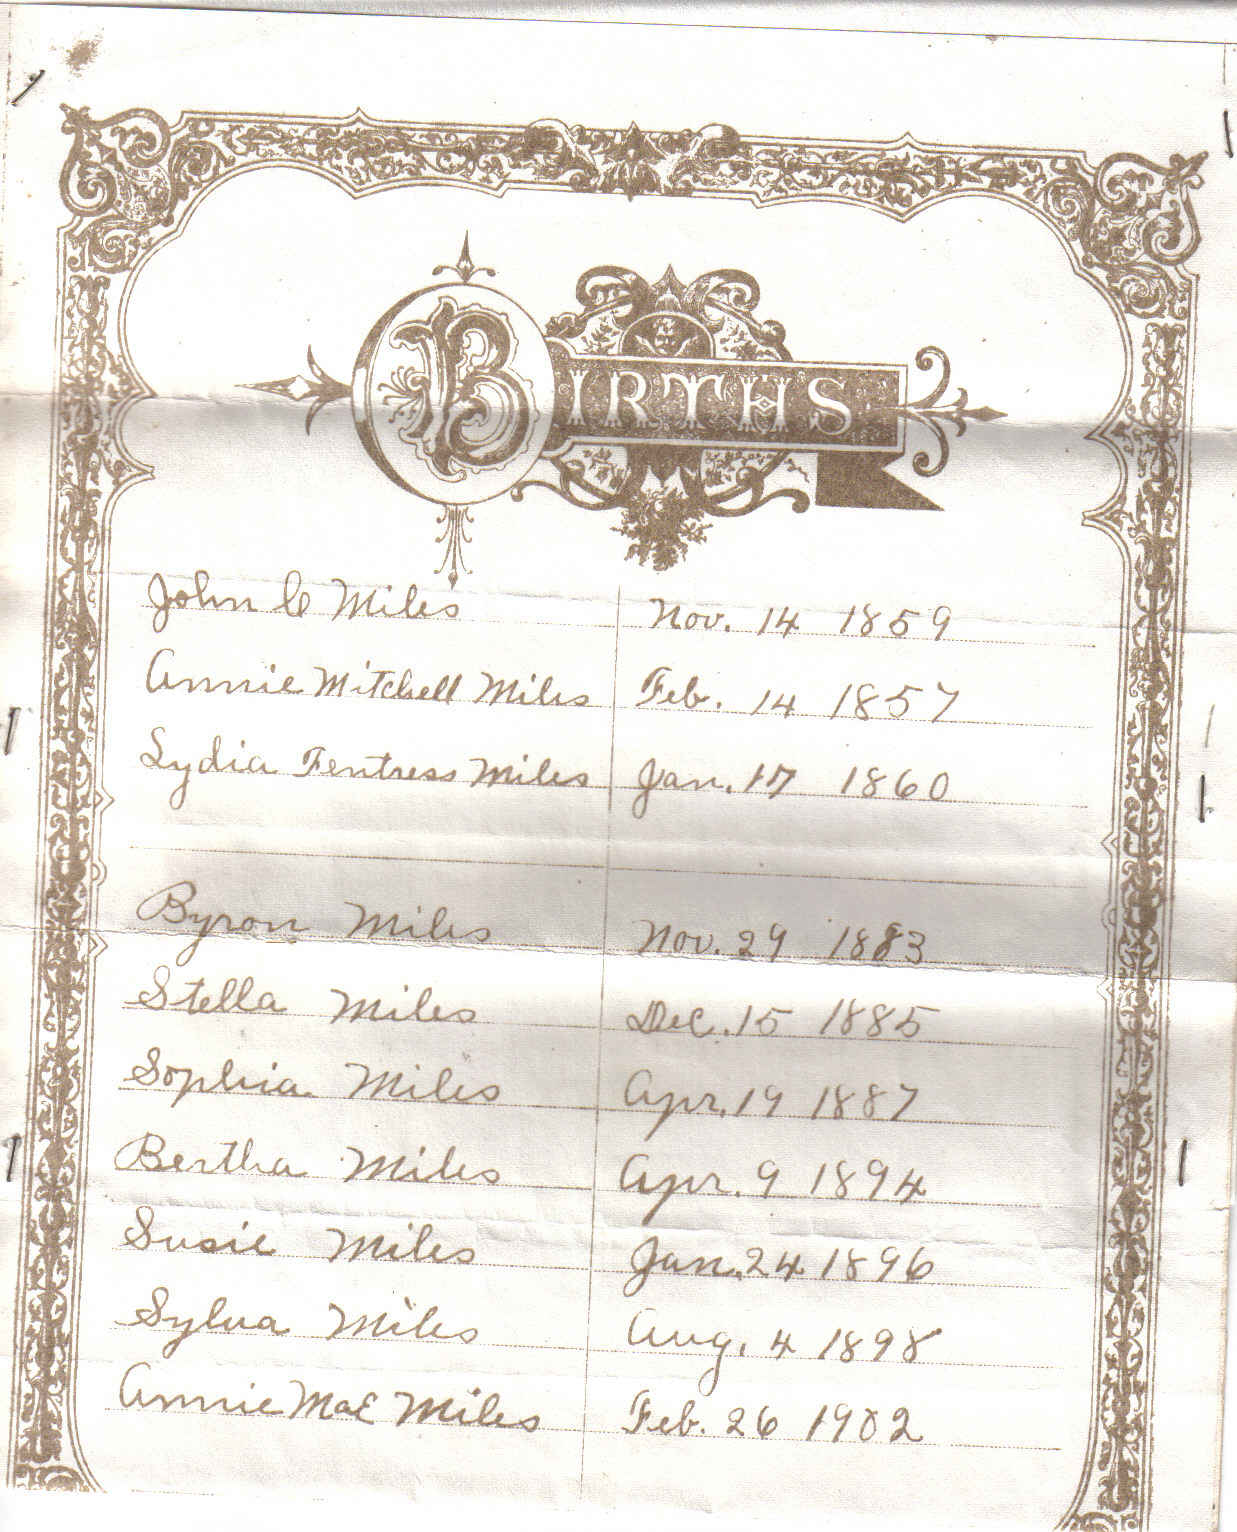 BIRTHS
John C Miles Nov. 14 1859
Annie Mitchell Miles Feb. 14 1857
Lydia Fentress Miles Jan. 17 1860
Byron Miles Nov. 29 1883
Stella Miles Dec. 15 1885
Sophia Miles Apr. 19 1887
Bertha Miles Apr. 9 1894
Susie Miles Jan. 24 1896
Sylva Miles Aug. 4 1898
Annie Mae Miles Feb. 26 1902